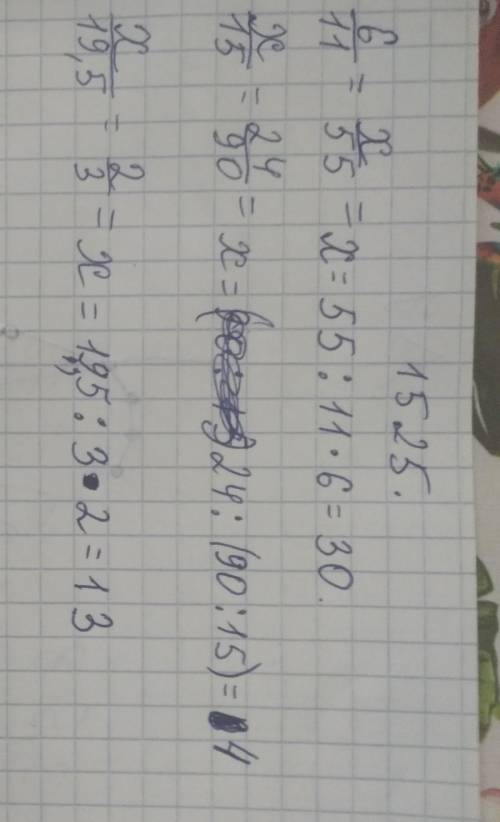 1525.
6/11 = x/55 = x = 55 : 11 · 6 = 30.
x/15 = 24/90 = x = 24 : (90 : 15) = 4
x/19,5 = 2/3 = x = 19,5 : 3 · 2 = 13